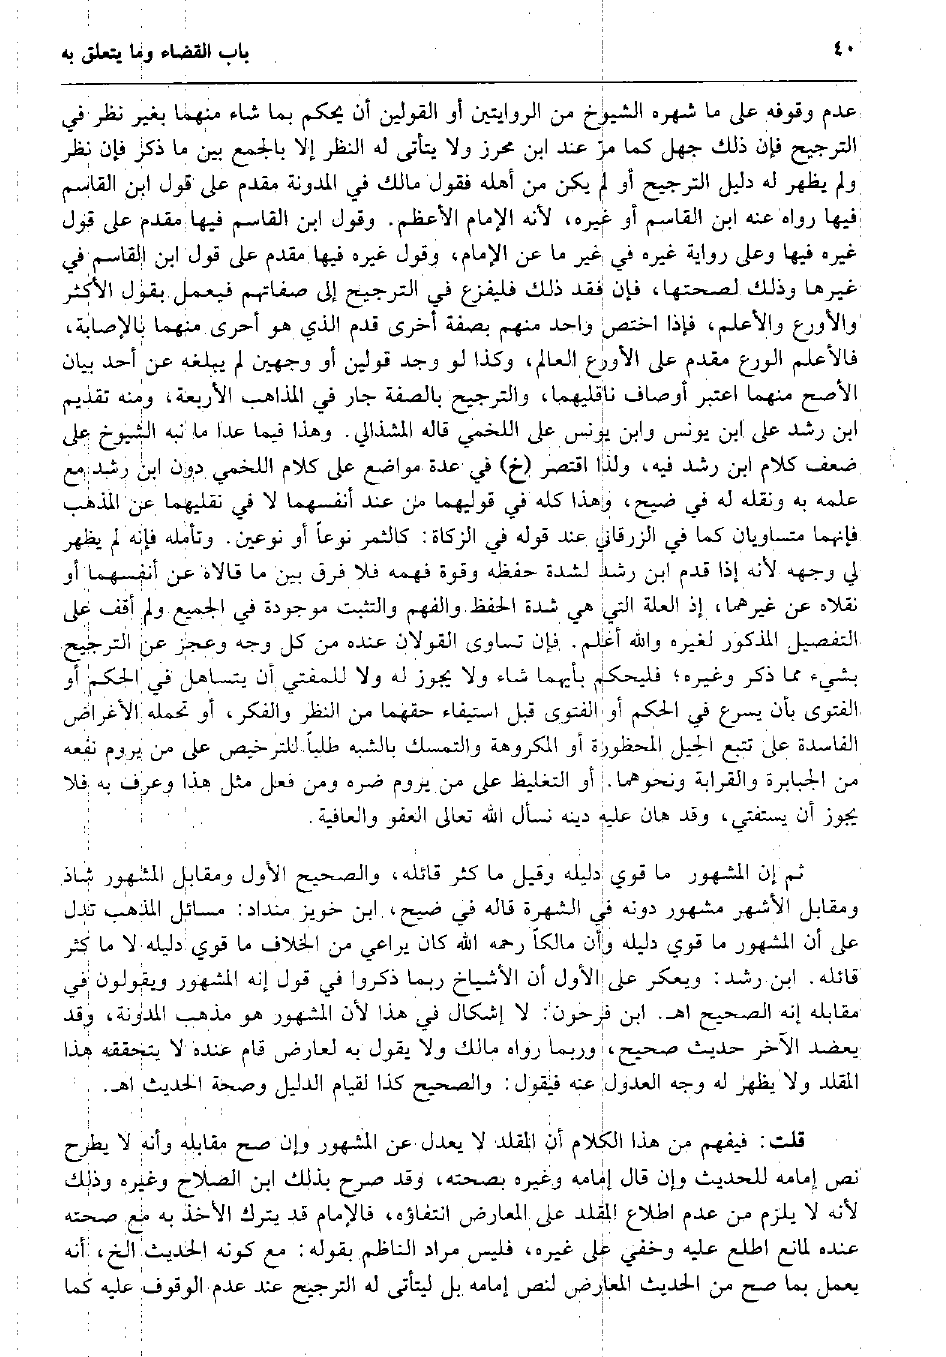 ٤٠ باب القضاء وما يتعلق به
عدم وقوفه على ما شهره الشيوخ من الروايتين أو القولين أن يحكم بما شاء منهما بغير نظر في
الترجيح فإن ذلك جهل كما مرّ عند ابن محرز ولا يتأتى له النظر إلا بالجمع بين ما ذكر فإن نظر
ولم يظهر له دليل الترجيح أو لم يكن من أهله فقول مالك في المدونة مقدم على قول ابن القاسم
فيها رواه عنه ابن القاسم أو غيره، لأنه الإمام الأعظم. وقول ابن القاسم فيها مقدم على قول
غيره فيها وعلى رواية غيره في غير ما عن الإمام، وقول غيره فيها مقدم على قول ابن القاسم في
غيرها وذلك لصحتها، فإن فقد ذلك فليفزع في الترجيح إلى صفاتهم فيعمل بقول الأكثر
والأورع والأعلم، فإذا اختص واحد منهم بصفة أخرى قدم الذي هو أحرى منهما بالإصابة،
فالأعلم الورع مقدم على الأورع العالم، وكذا لو وجد قولين أو وجهين لم يبلغه عن أحد بيان
الأصح منهما اعتبر أوصاف ناقليهما، والترجيح بالصفة جار في المذاهب الأربعة، ومنه تقديم
ابن رشد على ابن يونس وابن يونس على اللخمي قاله المشذالي. وهذا فيما عدا ما نبه الشيوخ على
ضعف كلام ابن رشد فيه، ولذا اقتصر (خ) في عدة مواضع على كلام اللخمي دون ابن رشد مع
علمه به ونقله له في ضيح، وهذا كله في قوليهما من عند أنفسهما لا في نقليهما عن المذهب
فإنهما متساويان كما في الزرقاني عند قوله في الزكاة: كالثمر نوعاً أو نوعين. وتأمله فإنه لم يظهر
لي وجهه لأنه إذا قدم ابن رشد لشدة حفظه وقوة فهمه فلا فرق بين ما قالاه عن أنفسهما أو
نقلاه عن غيرهما، إذ العلة التي هي شدة الحفظ والفهم والتثبت موجودة في الجميع ولم أقف على
التفصيل المذكور لغيره والله أعلم. فإن تساوى القولان عنده من كل وجه وعجز عن الترجيح
بشيء مما ذكر وغيره؛ فليحكم بأيهما شاء ولا يجوز له ولا للمفتي أن يتساهل في الحكم أو
الفتوى بأن يسرع في الحكم أو الفتوى قبل استيفاء حقهما من النظر والفكر، أو تحمله الأغراض
الفاسدة على تتبع الحيل المحظورة أو المكروهة والتمسك بالشبه طلباً للترخيص على من يروم نفعه
من الجبابرة والقرابة ونحوهما. أو التغليظ على من يروم ضره ومن فعل مثل هذا وعرف به فلا
يجوز أن يستفتي، وقد هان عليه دينه نسأل الله تعالى العفو والعافية.
ثم إن المشهور ما قوي دليله وقيل ما كثر قائله، والصحيح الأول ومقابل المشهور شاذ
ومقابل الأشهر مشهور دونه في الشهرة قاله في ضيح، ابن خويز منداد: مسائل المذهب تدل
على أن المشهور ما قوي دليله وأن مالكاً رحمه الله كان يراعي من الخلاف ما قوي دليله لا ما كثر
قائله. ابن رشد: ويعكر على الأول أن الأشياخ ربما ذكروا في قول إنه المشهور ويقولون في
مقابله إنه الصحيح اهـ. ابن فرحون: لا إشكال في هذا لأن المشهور هو مذهب المدونة، وقد
يعضد الآخر حديث صحيح، وربما رواه مالك ولا يقول به لعارض قام عنده لا يتحققه هذا
المقلد ولا يظهر له وجه العدول عنه فيقول: والصحيح كذا لقيام الدليل وصحة الحديث اهـ.
قلت: فيفهم من هذا الكلام أن المقلد لا يعدل عن المشهور وإن صح مقابله وأنه لا يطرح
نص إمامه للحديث وإن قال إمامه وغيره بصحته، وقد صرح بذلك ابن الصلاح وغيره وذلك
لأنه لا يلزم من عدم اطلاع المقلد على المعارض انتفاؤه، فالإمام قد يترك الأخذ به مع صحته
عنده لمانع اطلع عليه وخفي على غيره، فليس مراد الناظم بقوله: مع كونه الحديث الخ، أنه
يعمل بما صح من الحديث المعارض لنص إمامه بل ليتأتى له الترجيح عند عدم الوقوف عليه كما